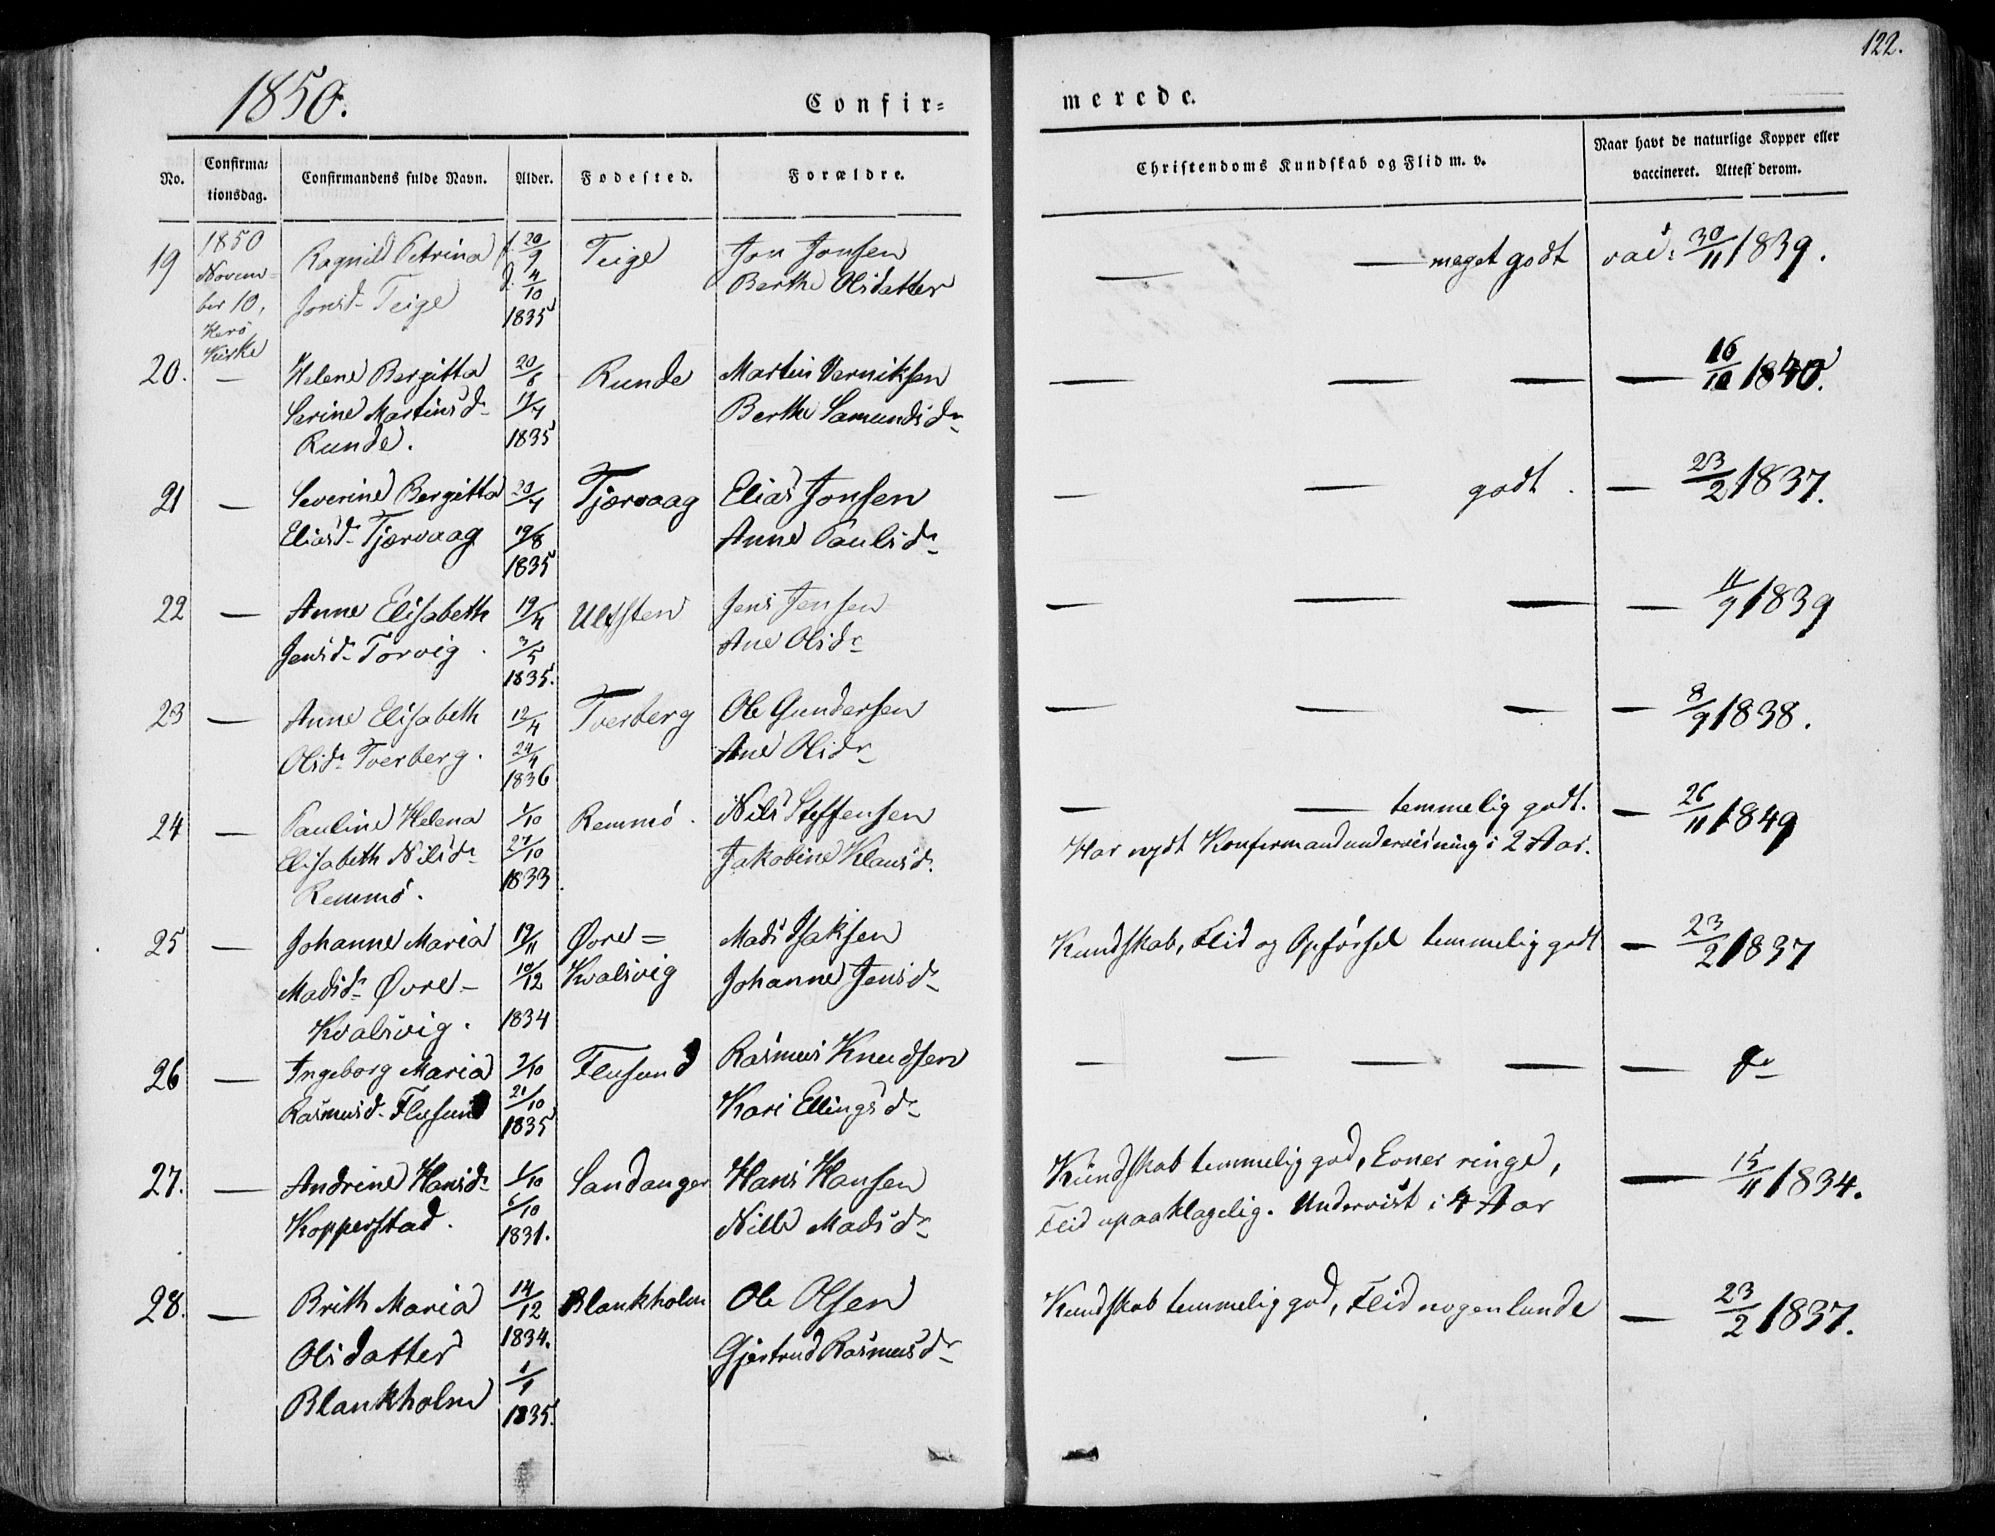 122.
1850.
Confir=
merede.
No.
Confirma=
tionsdag.
Confirmandens fulde Navn.
Alder.
Fødested.
Forældre.
Christendoms Kundskab og Flid m. v.
Naar havt de naturlige Kopper eller
vaccineret. Attest derom.
19
1850
Novem=
ber 10,
Herø
Kirke
Ragnild Petrina
Jonsd. Teige
f. 20/9
d. 4/10
1835
Teige
Jon Jonsen
Berthe Olsdatter
— — meget godt
vac: 30/11 1839.
20. —
Helene Bergitta
Serine Martinsd.
Runde.
20/6
17/7
1835
Runde
Martin Verniksen
Berthe Samundsdr
— — — — 16/10 1840.
21 —
Severine Bergitta
Eliasd. Tjærvaag
20/7
19/8
1835
Tjærvaag
Elias Jonsen
Anne Paulsdr
— — godt.
— 23/2 1837.
22 —
Anne Elisabeth
Jensd. Torvig.
19/4
3/5
1835.
Ulfsten
Jens Jensen
Ane Olsdr
— — — — 11/9 1839
23 —
Anne Elisabeth
Olsdr Tverberg.
12/4
24/4
1836
Tverberg
Ole Gundersen
Ane Olsdr
— — — — 8/9 1838.
24 —
Pauline Helena
Elisabeth Nilsdr
Remmø.
1/10
27/10
1833.
Remmø.
Nils Steffensen
Jakobine Klausdr.
— — temmelig godt.
Har nydt Konfermandundervisning i 2 Aar.
— 26/11 1849
25 —
Johanne Maria
Madsdr Øvre=
Kvalsvig.
19/11
10/12
1834
Øvre=
Kvalsvig
Mads Isaksen
Johanne Jensdr
Kundskab, Flid og Opførsel temmelig godt
— 23/2 1837
26 —
Ingeborg Maria
Rasmusd. Flusund
7/10
21/10
1835
Flusund
Rasmus Knudsen
Kari Ellingsdr
— — — — —
27. —
Andrine Hansdr
Kopperstad.
1/10
6/10
1831.
Sandanger
Hans Hansen
Nille Madsdr
Kundskab temmelig god, Evner ringe,
Flid upaaklagelig. Undervist i 4 Aar
— 15/11 1834.
28. —
Brith Maria
Olsdatter
Blankholm
14/12
1834.
1/1
1835.
Blankholm
Ole Olsen
Gjertrud Rasmusdr
Kundskab temmelig god, Flid nogenlunde
— 23/2 1837.